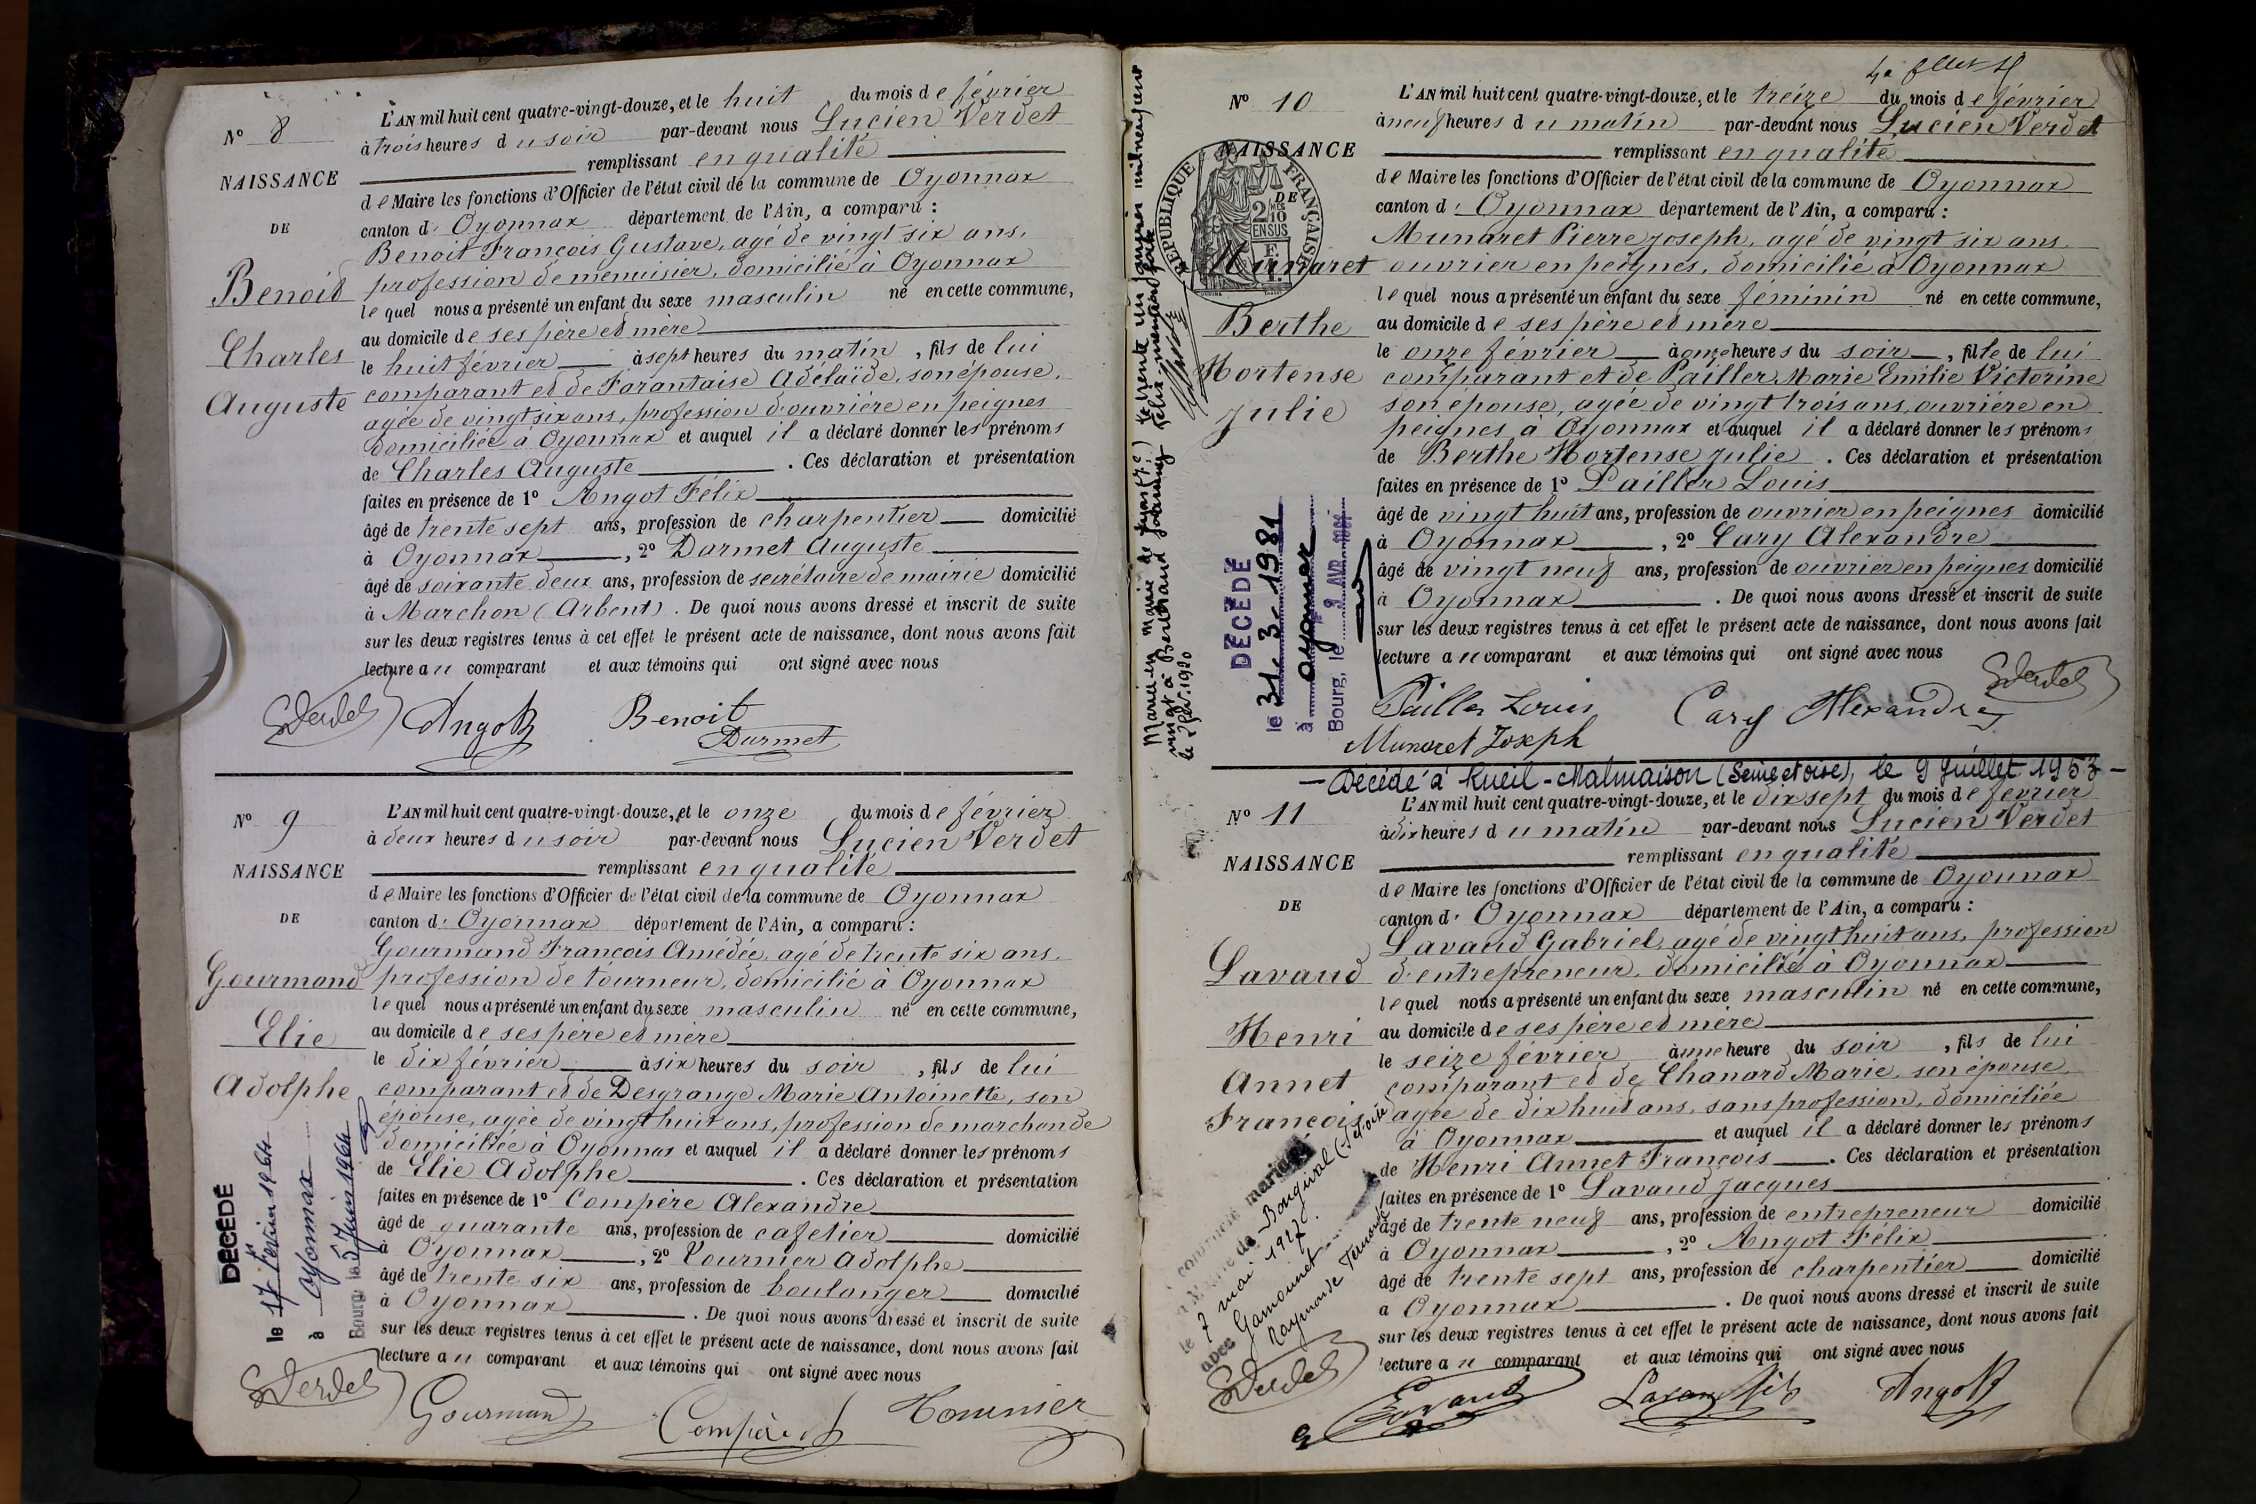 N° 8
NAISSANCE
DE
Benoit
Charles
Auguste
L'AN mil huit cent quatre-vingt-douze, et le huit du mois de février
à trois heures du soir par-devant nous Lucien Verdet
remplissant en qualité
de Maire les fonctions d'Officier de l'état civil de la commune de Oyonnax
canton d' Oyonnax département de l'Ain, a comparu :
Benoit François Gustave, agé de vingt six ans,
profession de menuisier, domicilié à Oyonnax
lequel nous a présenté un enfant du sexe masculin né en cette commune,
au domicile de ses père et mère
le huit février à sept heures du matin, fils de lui
comparant et de Tarantaise Adélaïde, son épouse,
agée de vingt six ans, profession d'ouvrière en peignes
domiciliée à Oyonnax et auquel il a déclaré donner les prénoms
de Charles Auguste. Ces déclaration et présentation
faites en présence de 1° Angot Félix
âgé de trente sept ans, profession de charpentier domicilié
à Oyonnax, 2° Darmet Auguste
âgé de soixante deux ans, profession de secrétaire de mairie domicilié
à Marchon (Arbent). De quoi nous avons dressé et inscrit de suite
sur les deux registres tenus à cet effet le présent acte de naissance, dont nous avons fait
lecture au comparant et aux témoins qui ont signé avec nous
LVerdet Angot Benoit
Darmet
N° 9
NAISSANCE
DE
Gourmand
Elie
Adolphe
DÉCÉDÉ
le 17 Février 1964
à Oyonnax
Bourg, le 5 Juin 1964
L'AN mil huit cent quatre-vingt-douze, et le onze du mois de février
à deux heures du soir par-devant nous Lucien Verdet
remplissant en qualité
de Maire les fonctions d'Officier de l'état civil de la commune de Oyonnax
canton d' Oyonnax département de l'Ain, a comparu :
Gourmand François Amédée, agé de trente six ans,
profession de tourneur, domicilié à Oyonnax
lequel nous a présenté un enfant du sexe masculin né en cette commune,
au domicile de ses père et mère
le dix février à six heures du soir, fils de lui
comparant et de Desgrange Marie Antoinette, son
épouse, agée de vingt huit ans, profession de marchande
domiciliée à Oyonnax et auquel il a déclaré donner les prénoms
de Elie Adolphe. Ces déclaration et présentation
faites en présence de 1° Compère Alexandre
âgé de quarante ans, profession de cafetier domicilié
à Oyonnax, 2° Tournier Adolphe
âgé de trente six ans, profession de boulanger domicilié
à Oyonnax. De quoi nous avons dressé et inscrit de suite
sur les deux registres tenus à cet effet le présent acte de naissance, dont nous avons fait
lecture au comparant et aux témoins qui ont signé avec nous
LVerdet Gourmand Compère Tournier
N° 10
NAISSANCE
DE
RÉPUBLIQUE FRANÇAISE
2 MES
10
EN SUS
Munaret
Berthe
Hortense
Julie
DÉCÉDÉ
le 31-3-1981
à oyonnax
Bourg, le
le 2 Fév. 1920
L'AN mil huit cent quatre-vingt-douze, et le treize du mois de février
à neuf heures du matin par-devant nous Lucien Verdet
remplissant en qualité
de Maire les fonctions d'Officier de l'état civil de la commune de Oyonnax
canton d' Oyonnax département de l'Ain, a comparu :
Munaret Pierre Joseph, agé de vingt six ans
ouvrier en peignes, domicilié à Oyonnax
lequel nous a présenté un enfant du sexe féminin né en cette commune,
au domicile de ses père et mère
le onze février à onze heures du soir, fille de lui
comparant et de Pailler Marie Emilie Victorine
son épouse, agée de vingt trois ans, ouvrière en
peignes à Oyonnax et auquel il a déclaré donner les prénoms
de Berthe Hortense Julie. Ces déclaration et présentation
faites en présence de 1° Pailler Louis
âgé de vingt huit ans, profession de ouvrier en peignes domicilié
à Oyonnax, 2° Cary Alexandre
âgé de vingt neuf ans, profession de ouvrier en peignes domicilié
à Oyonnax. De quoi nous avons dressé et inscrit de suite
sur les deux registres tenus à cet effet le présent acte de naissance, dont nous avons fait
lecture au comparant et aux témoins qui ont signé avec nous
LVerdet
Pailler Louis Cary Alexandre
Munaret Joseph
— Décédé à Rueil-Malmaison (Seine et Oise), le 9 Juillet 1953 —
N° 11
NAISSANCE
DE
Lavaud
Henri
Annet
François
Bougival
le 7 mai 1927
avec Gamounet
Raymonde
L'AN mil huit cent quatre-vingt-douze, et le dix sept du mois de février
à dix heures du matin par-devant nous Lucien Verdet
remplissant en qualité
de Maire les fonctions d'Officier de l'état civil de la commune de Oyonnax
canton d' Oyonnax département de l'Ain, a comparu :
Lavaud Gabriel, agé de vingt huit ans, profession
d'entrepreneur, domicilié à Oyonnax
lequel nous a présenté un enfant du sexe masculin né en cette commune,
au domicile de ses père et mère
le seize février à une heure du soir, fils de lui
comparant et de Chanard Marie, son épouse,
agée de dix huit ans, sans profession, domiciliée
à Oyonnax et auquel il a déclaré donner les prénoms
de Henri Annet François. Ces déclaration et présentation
faites en présence de 1° Lavaud Jacques
âgé de trente neuf ans, profession de entrepreneur domicilié
à Oyonnax, 2° Angot Félix
âgé de trente sept ans, profession de charpentier domicilié
à Oyonnax. De quoi nous avons dressé et inscrit de suite
sur les deux registres tenus à cet effet le présent acte de naissance, dont nous avons fait
lecture au comparant et aux témoins qui ont signé avec nous
LVerdet Angot